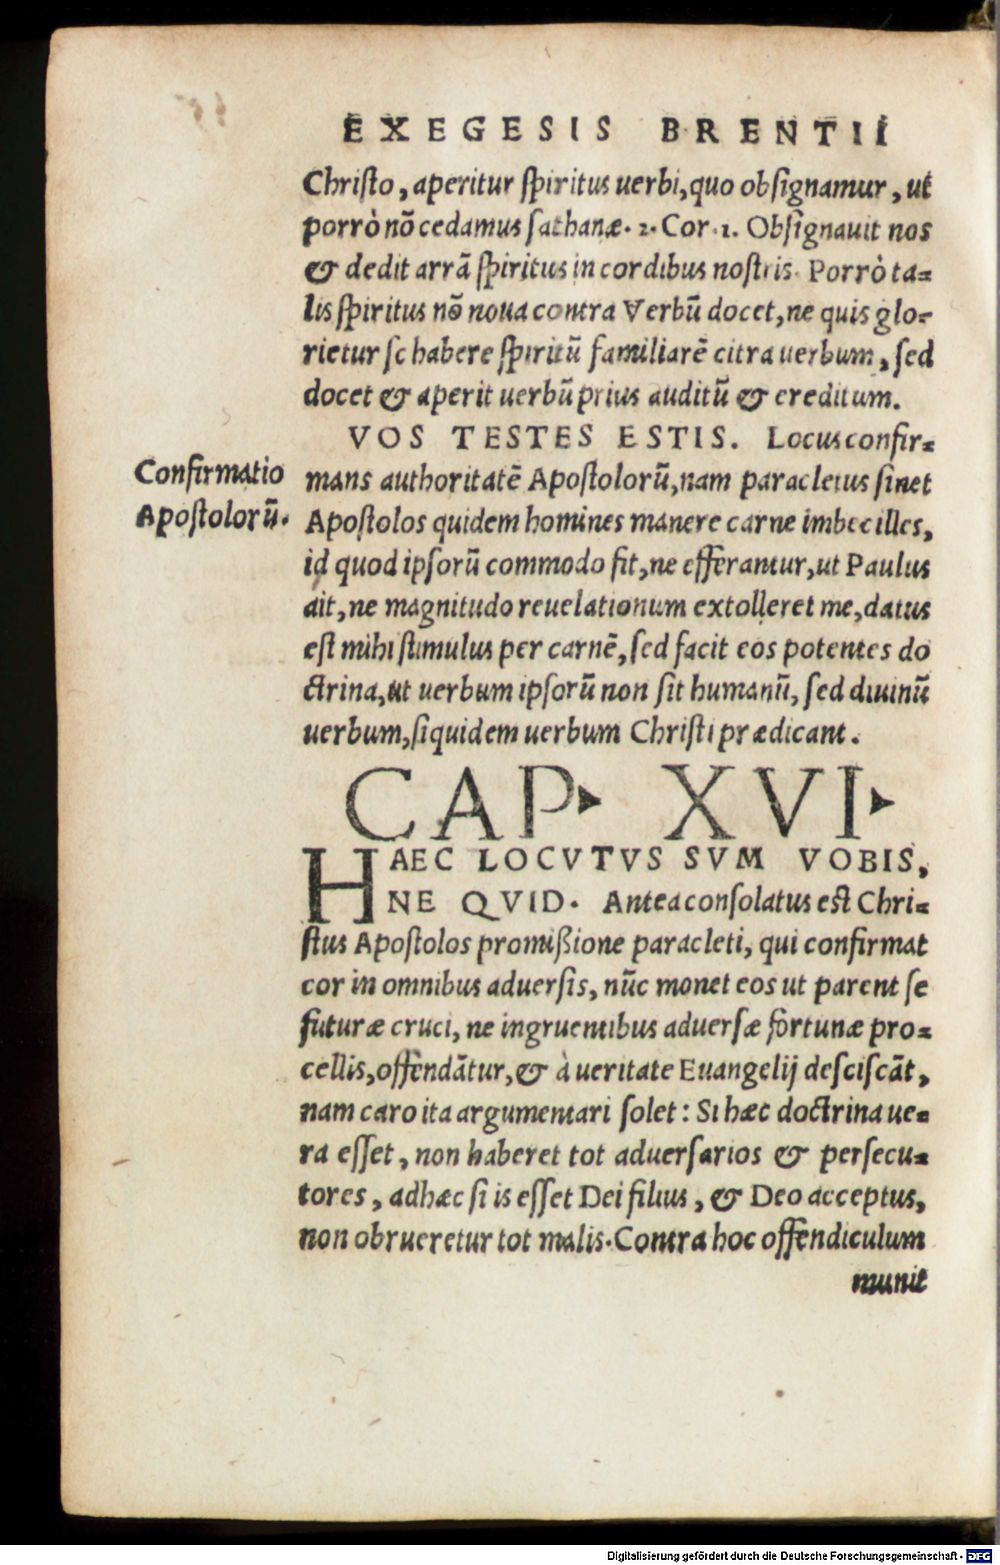 EXEGESIS BRENTII
Christo, aperitur spiritus uerbi, quo obsignamur, ut
porrò nõ cedamus sathanæ. 2. Cor. 1. Obsignauit nos
& dedit arrã spiritus in cordibus nostris. Porrò ta-
lis spiritus nõ noua contra Verbũ docet, ne quis glo-
rietur se habere spiritũ familiarẽ citra uerbum, sed
docet & aperit uerbũ prius auditũ & creditum.
VOS TESTES ESTIS. Locus confir-
Confirmatio
Apostolorũ.
mans authoritatẽ Apostolorũ, nam paracletus sinet
Apostolos quidem homines manere carne imbecilles,
id quod ipsorũ commodo fit, ne efferantur, ut Paulus
ait, ne magnitudo reuelationum extolleret me, datus
est mihi stimulus per carnẽ, sed facit eos potentes do
ctrina, ut uerbum ipsorũ non sit humanũ, sed diuinũ
uerbum, siquidem uerbum Christi prædicant.
CAP. XVI.
HAEC LOCVTVS SVM VOBIS,
NE QVID. Antea consolatus est Chri-
stus Apostolos promißione paracleti, qui confirmat
cor in omnibus aduersis, nũc monet eos ut parent se
futuræ cruci, ne ingruentibus aduersæ fortunæ pro-
cellis, offendãtur, & à ueritate Euangelij desciscãt,
nam caro ita argumentari solet: Si hæc doctrina ue-
ra esset, non haberet tot aduersarios & persecu-
tores, adhæc si is esset Dei filius, & Deo acceptus,
non obrueretur tot malis. Contra hoc offendiculum
munit
Digitalisierung gefördert durch die Deutsche Forschungsgemeinschaft - DFG